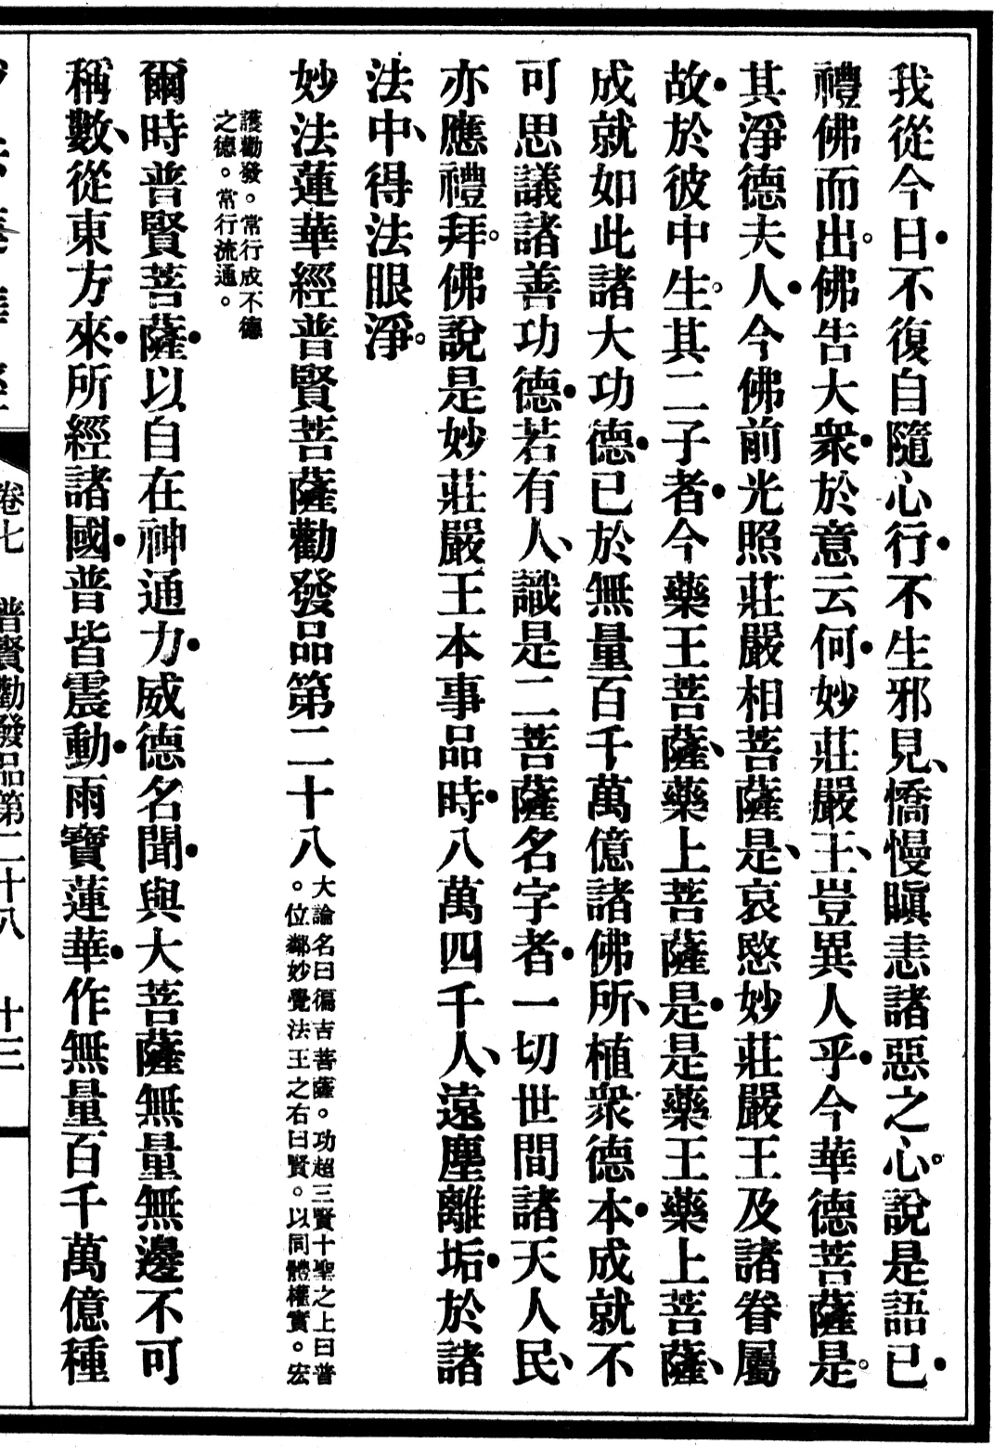 我從今日不復自隨心行不生邪見、憍慢瞋恚諸惡之心。說是語已
禮佛而出。佛告大衆於意云何妙莊嚴王、豈異人乎今華德菩薩是。
其淨德夫人今佛前光照莊嚴相菩薩是、哀愍妙莊嚴王及諸眷屬
故於彼中生。其二子者今藥王菩薩、藥上菩薩是是藥王藥上菩薩、
成就如此諸大功德已於無量百千萬億諸佛所、植衆德本成就不
可思議諸善功德若有人、識是二菩薩名字者一切世間諸天人民、
亦應禮拜。佛說是妙莊嚴王本事品時八萬四千人、遠塵離垢於諸
法中、得法眼淨。
妙法蓮華經普賢菩薩勸發品第二十八
大論名曰徧吉菩薩。功超三賢十聖之上曰普
。位鄰妙覺法王之右曰賢。以同體權實。宏
護勸發。常行成不德
之德。常行流通。
爾時普賢菩薩以自在神通力威德名聞與大菩薩無量無邊不可
稱數、從東方來所經諸國普皆震動雨寶蓮華作無量百千萬億種
卷七 普賢勸發品第二十八 十三